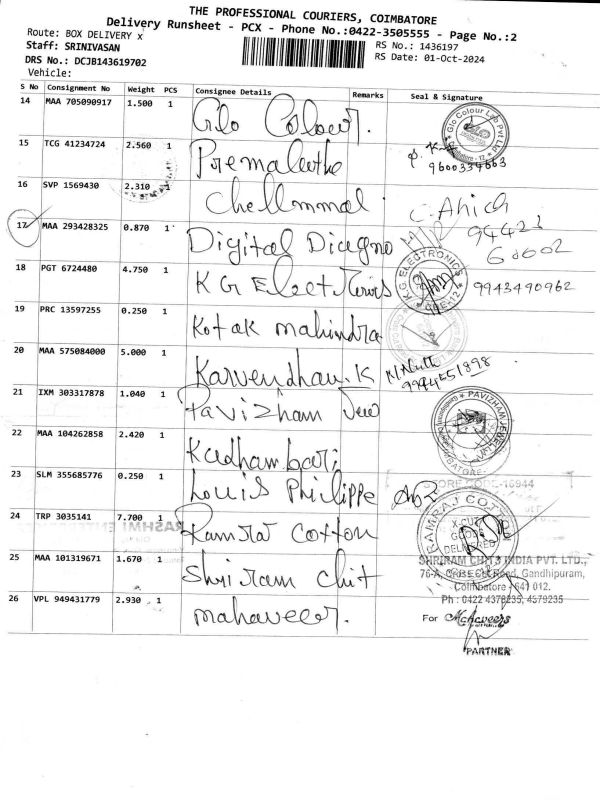 THE PROFESSIONAL COURIERS, COIMBATORE
Delivery Runsheet - PCX - Phone No.:0422-3505555 - Page No.:2
Route: BOX DELIVERY x
RS No.: 1436197
Staff: SRINIVASAN
RS Date: 01-Oct-2024
DRS No.: DCJB143619702
Vehicle:
S No Consignment No Weight PCS Consignee Details Remarks Seal & Signature
14 MAA 705090917 1.500 1 Glo Colour.
Glo Colour Lab Pvt Ltd
15 TCG 41234724 2.560 1 Premalatha
9600334663
16 SVP 1569430 2.310 1 Chellmmal
17 MAA 293428325 0.870 1 Digital Diagno
94423
60002
18 PGT 6724480 4.750 1 KG Electronics
K.G. ELECTRONICS
CBE-12
9943490962
19 PRC 13597255 0.250 1 Kotak mahindra
20 MAA 575084000 5.000 1 Karvendhan.K
9994551898
21 IXM 303317878 1.040 1 Pavizham Jew
PAVIZHAM JEWEL
22 MAA 104262858 2.420 1 Kadhambari
23 SLM 355685776 0.250 1 Louis Philippe
STORE CODE-16944
24 TRP 3035141 7.700 1 Ramraj Cotton
RAMRAJ COTTON
DELIVERED
25 MAA 101319671 1.670 1 Shriram chit
SHRIRAM CHITS INDIA PVT. LTD.,
76-A, Cross Cut Road, Gandhipuram,
Coimbatore - 641 012.
Ph : 0422 4378235, 4579235
26 VPL 949431779 2.930 1 mahaveer.
For Mahaveers
PARTNER